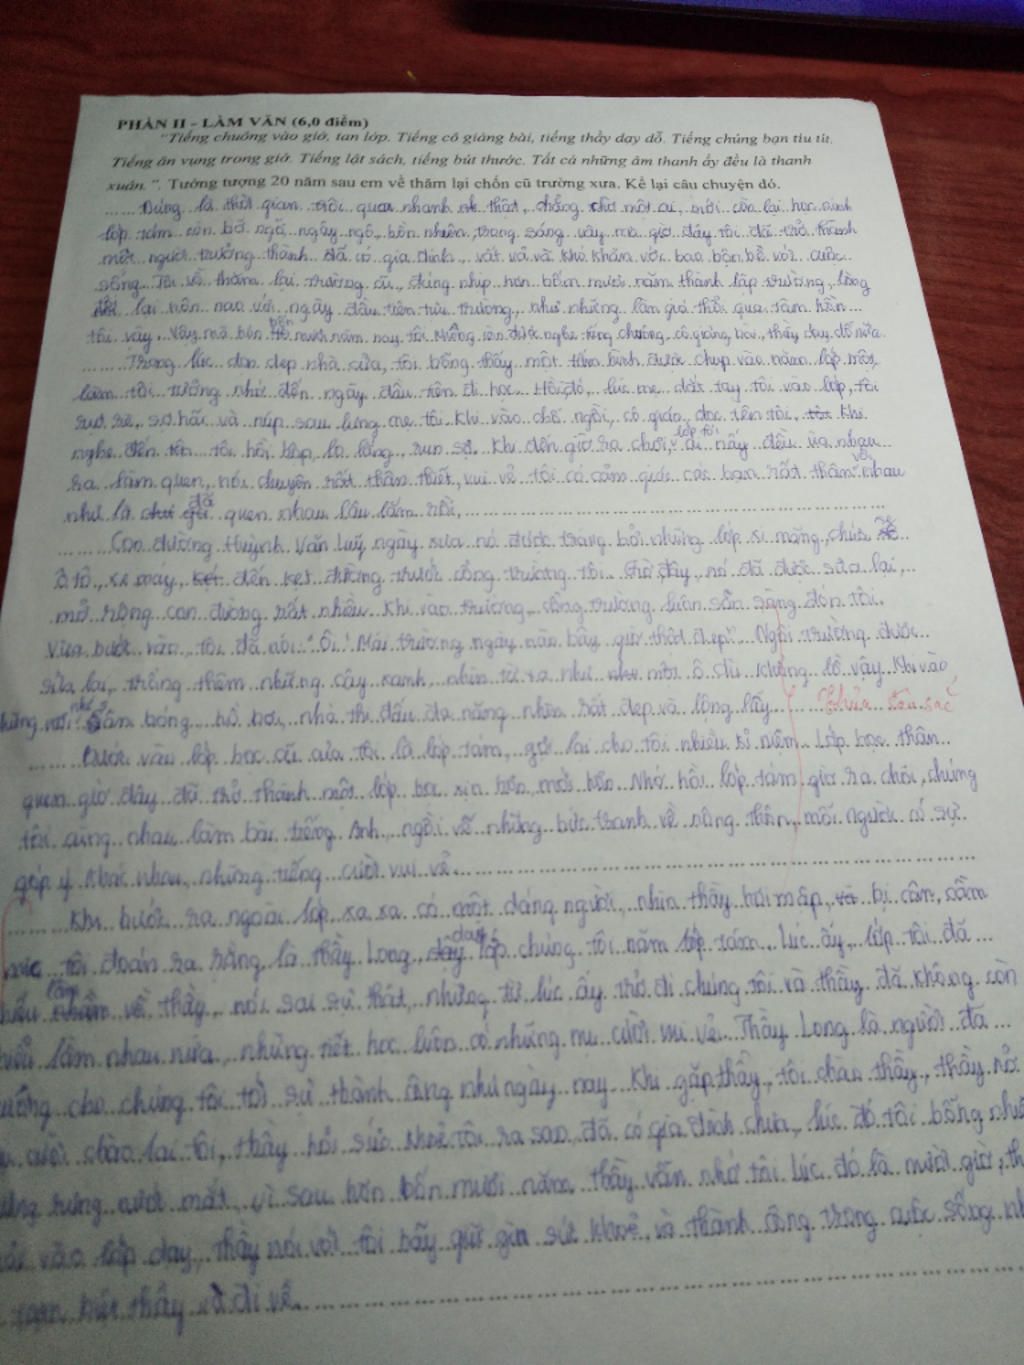 PHẦN II - LÀM VĂN (6,0 điểm)
"Tiếng chuông vào giờ, tan lớp. Tiếng cô giảng bài, tiếng thầy dạy dỗ. Tiếng chúng bạn tíu tít.
Tiếng ăn vụng trong giờ. Tiếng lật sách, tiếng bút thước. Tất cả những âm thanh ấy đều là thanh
xuân.". Tưởng tượng 20 năm sau em về thăm lại chốn cũ trường xưa. Kể lại câu chuyện đó.
Đúng là thời gian trôi qua nhanh thật, chẳng chờ một ai, mới còn lại học sinh
lớp tám còn bỡ ngỡ, ngây ngô, hồn nhiên, trong sáng vậy mà giờ đây tôi đã trở thành
một người trưởng thành đã có gia đình, vất vả và khó khăn với bao bộn bề với cuộc
sống. Tôi về thăm lại trường cũ, đúng nhịp hơn bốn mươi năm thành lập trường, lòng
lại nôn nao với ngày đầu tiên tựu trường, như những làn gió thổi qua tâm hồn
tôi vậy. Vậy mà hơn bốn mươi năm nay tôi không còn được nghe tiếng chuông, cô giảng bài, thầy dạy dỗ nữa.
Trong lúc dọn dẹp nhà cửa, tôi bỗng thấy một tấm hình được chụp vào năm lớp một,
làm tôi tưởng nhớ đến ngày đầu tiên đi học. Hồi đó, lúc mẹ dắt tay tôi vào lớp, tôi
rụt rè, sợ hãi và núp sau lưng mẹ tôi. Khi vào chỗ ngồi, cô giáo đọc tên tôi, khi
nghe đến tên tôi hồi hộp, lo lắng, run sợ. Khi đến giờ ra chơi, lớp tôi ai nấy đều ùa nhau
ra làm quen, nói chuyện rất thân thiết, vui vẻ tôi có cảm giác các bạn rất thân với nhau
như là đã quen nhau lâu lắm rồi.
Con đường Huỳnh Văn Luỹ ngày xưa nó được tráng bởi những lớp xi măng, chưa
ô tô, xe máy, đến kẹt đường trước cổng trường tôi. Giờ đây, nó đã được sửa lại,
mở rộng con đường rất nhiều. Khi vào trường, cổng trường luôn sẵn sàng đón tôi.
Vừa bước vào, tôi đã nói: "Ôi! Mái trường ngày nào bây giờ thật đẹp!" Ngôi trường được
sửa lại, trồng thêm những cây xanh, nhìn từ xa như một ô dù khổng lồ vậy. Khi vào
những nơi như: sân bóng, hồ bơi, nhà thi đấu đa năng nhìn rất đẹp và lộng lẫy. Chưa sâu sắc
Bước vào lớp học cũ của tôi là lớp tám, gợi lại cho tôi nhiều kỉ niệm. Lớp học thân
quen giờ đây đã trở thành một lớp học xịn hơn, mới hơn. Nhớ hồi lớp tám, giờ ra chơi, chúng
tôi cùng nhau làm bài tiếng Anh, ngồi vẽ những bức tranh về nông thôn, mỗi người có sự
góp ý khác nhau, những tiếng cười vui vẻ.
Khi bước ra ngoài lớp xa xa có một dáng người, nhìn thầy hơi mập, bị cận, cằm
tôi đoán ra rằng là thầy Long, dạy lớp chúng tôi năm lớp tám. Lúc ấy, lớp tôi đã
hiểu lầm về thầy, nói sai sự thật, nhưng từ lúc ấy trở đi chúng tôi và thầy đã không còn
hiểu lầm nhau nữa, những tiết học luôn có những nụ cười vui vẻ. Thầy Long là người đã
cho chúng tôi tới sự thành công như ngày nay. Khi gặp thầy, tôi chào thầy, thầy nở
cười chào lại tôi, thầy hỏi sức khoẻ tôi ra sao, đã có gia đình chưa, lúc đó tôi bỗng nhiên
rưng rưng nước mắt, vì sau hơn bốn mươi năm thầy vẫn nhớ tôi. Lúc đó là mười giờ,
vào lớp dạy, thầy nói với tôi hãy giữ gìn sức khoẻ, và thành công trong cuộc sống
tạm biệt thầy và đi về.